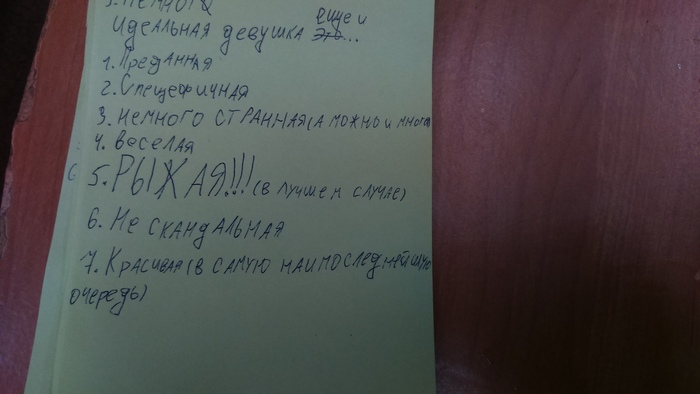 3. Немного
Идеальная девушка еще и ~~это~~...
1. Преданная
2. Спецефичная
3. Немного странная (а можно и много)
4. Веселая
5. РЫЖАЯ!!! (в лучшем случае)
6. Не скандальная
7. Красивая (в самую наипоследнейшую
очередь)